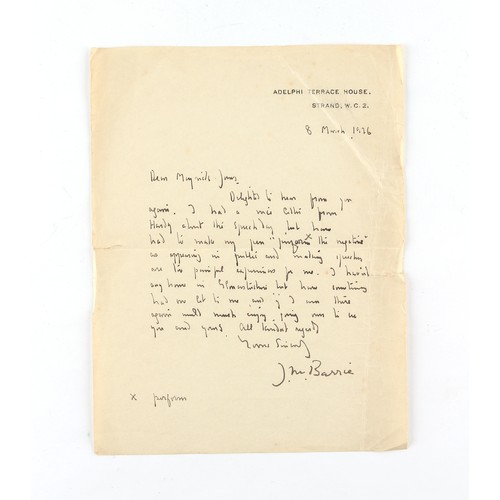 ADELPHI TERRACE HOUSE,
STRAND, W.C. 2.
8 March 1936
Dear Meyrick Jones
Delighted to hear from you
again. I had a nice letter from
Hardy about the Speechday but have
had to make my pen perform x the negative
as appearing in public and making speeches
are painful experiences for me. I haven't
any home in Gloucestershire but have sometimes
had one let to me and if I am there
again will much enjoy going over to see
you and yours. All kindest regards
Yours Sincerely
J. M. Barrie
x perform